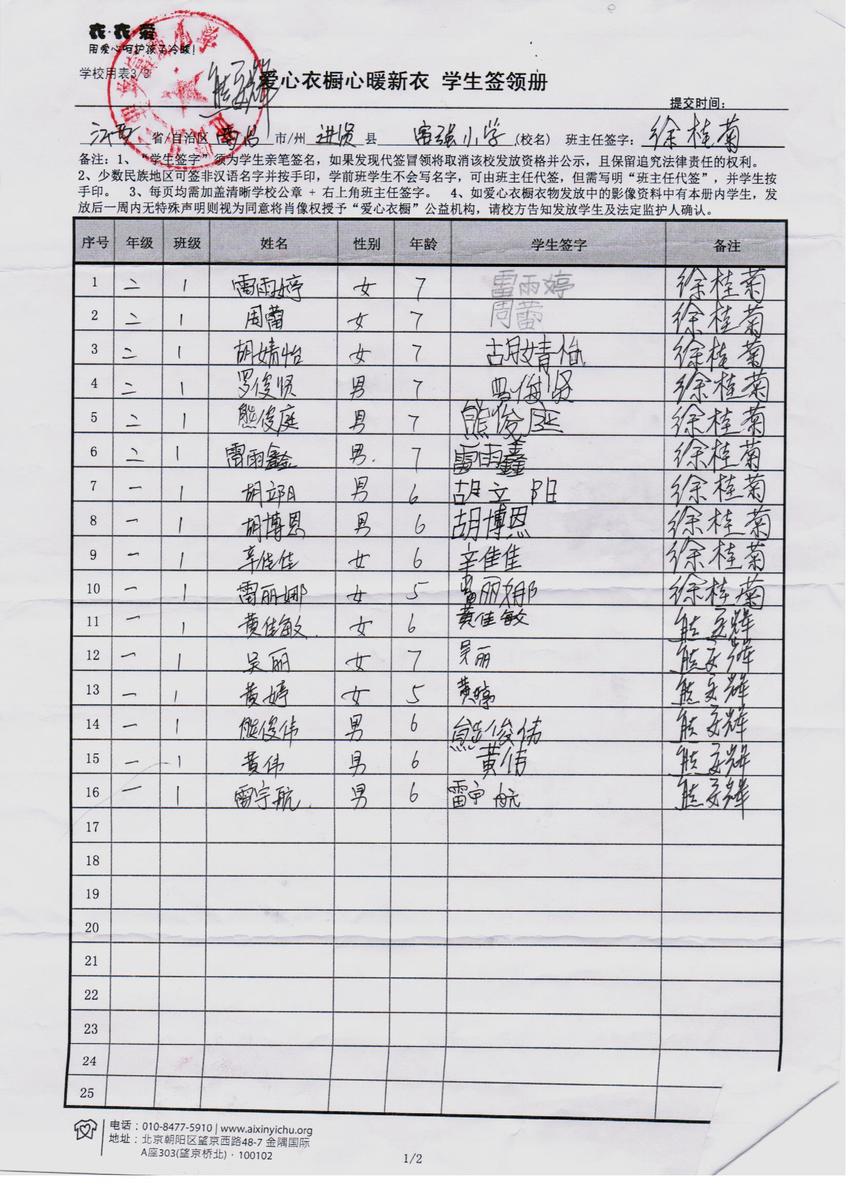 衣·衣爱
用爱心呵护孩子冷暖！
学校用表3/3
爱心衣橱心暖新衣 学生签领册
提交时间：
江西 省/自治区 南昌 市/州 进贤 县 小学 (校名) 班主任签字：徐桂菊
备注：1、“学生签字”须为学生亲笔签名，如果发现代签冒领将取消该校发放资格并公示，且保留追究法律责任的权利。
2、少数民族地区可签非汉语名字并按手印，学前班学生不会写名字，可由班主任代签，但需写明“班主任代签”，并学生按
手印。 3、每页均需加盖清晰学校公章 + 右上角班主任签字。 4、如爱心衣橱衣物发放中的影像资料中有本册内学生，发
放后一周内无特殊声明则视为同意将肖像权授予“爱心衣橱”公益机构，请校方告知发放学生及法定监护人确认。
序号 年级 班级 姓名 性别 年龄 学生签字 备注
1 二 1 雷雨婷 女 7 雷雨婷 徐桂菊
2 二 1 周蕾 女 7 周蕾 徐桂菊
3 二 1 胡婧怡 女 7 胡婧怡 徐桂菊
4 二 1 罗俊贤 男 7 罗俊贤 徐桂菊
5 二 1 熊俊庭 男 7 熊俊庭 徐桂菊
6 二 1 雷雨鑫 男 7 雷雨鑫 徐桂菊
7 一 1 胡立阳 男 6 胡立阳 徐桂菊
8 一 1 胡博恩 男 6 胡博恩 徐桂菊
9 一 1 辛佳佳 女 6 辛佳佳 徐桂菊
10 一 1 雷丽娜 女 5 雷丽娜 徐桂菊
11 一 1 黄佳敏 女 6 黄佳敏
12 一 1 吴丽 女 7 吴丽
13 一 1 黄婷 女 5 黄婷
14 一 1 熊俊伟 男 6 熊俊伟
15 一 1 黄伟 男 6 黄伟
16 一 1 雷宇航 男 6 雷宇航
17
18
19
20
21
22
23
24
25
电话：010-8477-5910 | www.aixinyichu.org
地址：北京朝阳区望京西路48-7 金隅国际
A座303(望京桥北)·100102
1/2